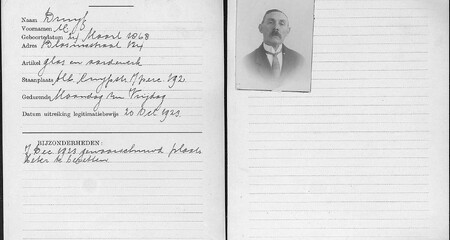 Naam Kruyf
Voornamen M
Geboortedatum Maart 1868
Adres Blasiusstraat
Artikel glas en aardewerk
Staanplaats Alb. Cuypstr. 192
Gedurende Maandag en Vrijdag
Datum uitreiking legitimatiebewijs 20 Dec 1923
BIJZONDERHEDEN:
Dec 1923 gewaarschuwd plaats
beter te bezetten